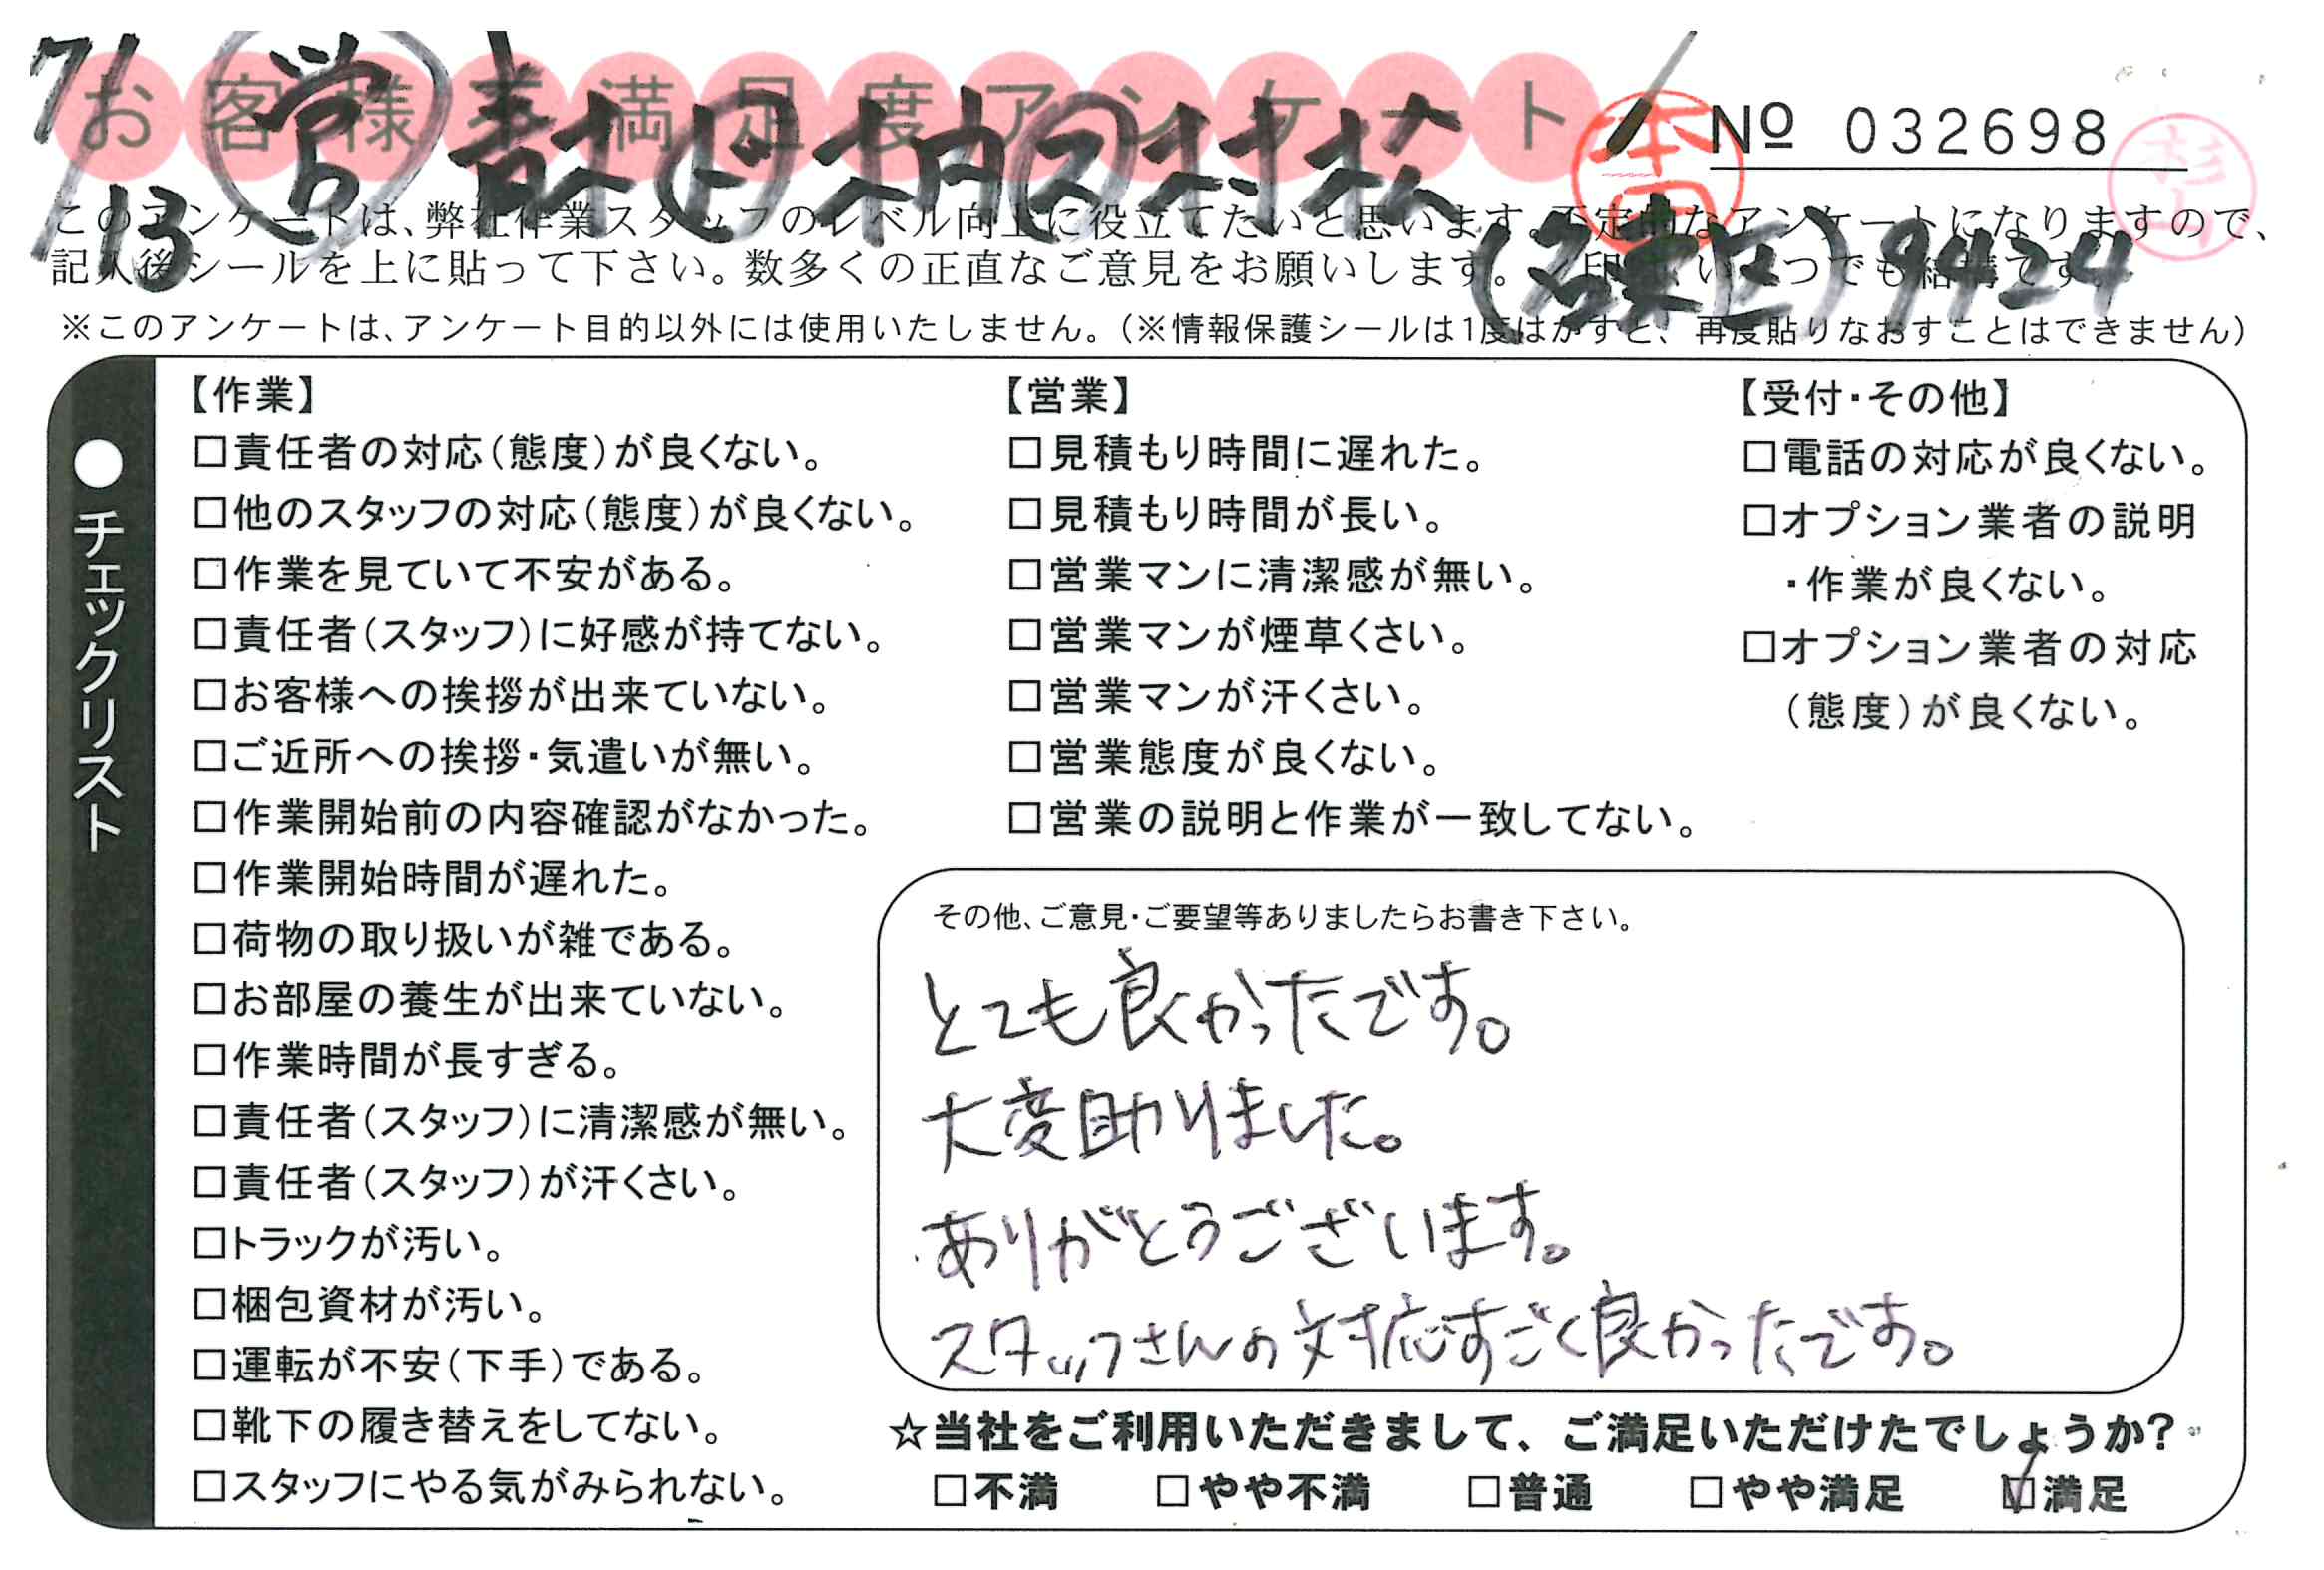 お客様不満足度アンケート
7/13 営 青木 ド 木内 ス 村松
本田
№ 032698
杉山
(名東区) 9424
このアンケートは、弊社作業スタッフのレベル向上に役立てたいと思います。不定的なアンケートになりますので、
記入後シールを上に貼って下さい。数多くの正直なご意見をお願いします。
※このアンケートは、アンケート目的以外には使用いたしません。(※情報保護シールは1度はがすと、再度貼りなおすことはできません)
●チェックリスト
【作業】
□責任者の対応(態度)が良くない。
□他のスタッフの対応(態度)が良くない。
□作業を見ていて不安がある。
□責任者(スタッフ)に好感が持てない。
□お客様への挨拶が出来ていない。
□ご近所への挨拶・気遣いが無い。
□作業開始前の内容確認がなかった。
□作業開始時間が遅れた。
□荷物の取り扱いが雑である。
□お部屋の養生が出来ていない。
□作業時間が長すぎる。
□責任者(スタッフ)に清潔感が無い。
□責任者(スタッフ)が汗くさい。
□トラックが汚い。
□梱包資材が汚い。
□運転が不安(下手)である。
□靴下の履き替えをしてない。
□スタッフにやる気がみられない。
【営業】
□見積もり時間に遅れた。
□見積もり時間が長い。
□営業マンに清潔感が無い。
□営業マンが煙草くさい。
□営業マンが汗くさい。
□営業態度が良くない。
□営業の説明と作業が一致してない。
【受付・その他】
□電話の対応が良くない。
□オプション業者の説明
・作業が良くない。
□オプション業者の対応
(態度)が良くない。
その他、ご意見・ご要望等ありましたらお書き下さい。
とても良かったです。
大変助りました。
ありがとうございます。
スタッフさんの対応すごく良かったです。
☆当社をご利用いただきまして、ご満足いただけたでしょうか?
□不満 □やや不満 □普通 □やや満足 ☑満足